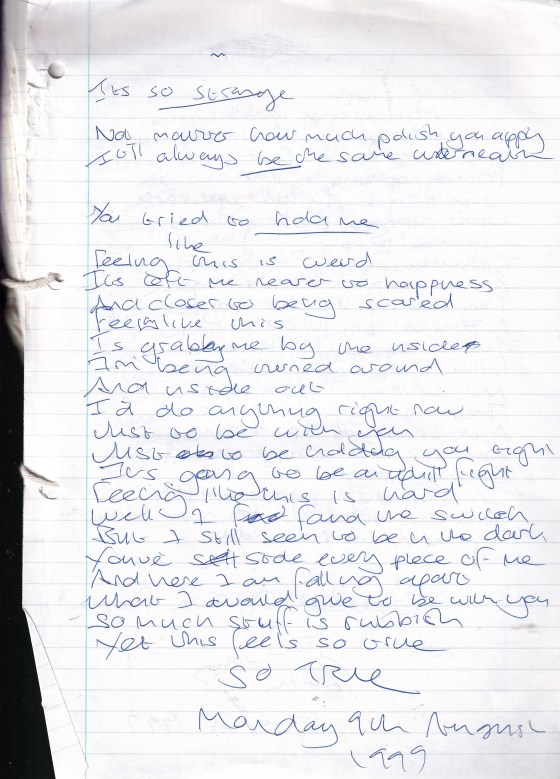 Its so strange
No matter how much polish you apply
It'll always be the same underneath
You tried to hold me
like
Feeling this is weird
Its left me nearer to happiness
And closer to being scared
Feeling like this
Is grabbing me by the insides
I'm being turned around
And inside out
I'd do anything right now
Just to be with you
Just to be holding you tight
Its going to be an uphill fight
Feeling like this is hard
Well I found the switch
But I still seem to be in the dark
You've stole every piece of me
And here I am falling apart
What I would give to be with you
So much stuff is rubbish
Yet this feels so true
SO TRUE
Monday 9th August
1999